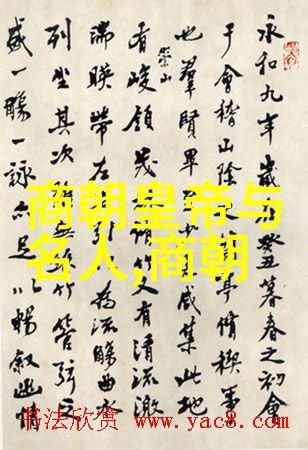 永和九年歲在癸丑暮春之初會
于會稽山陰亭脩稧事
也羣賢畢咸集此地
有崇山峻領茂竹又有清流激
湍暎帶左引為流觴曲水
列坐其次無竹管弦之
盛一觴一詠亦足以暢敘幽情
商朝皇帝与
名人,商朝
书法欣赏 www.yac8.com